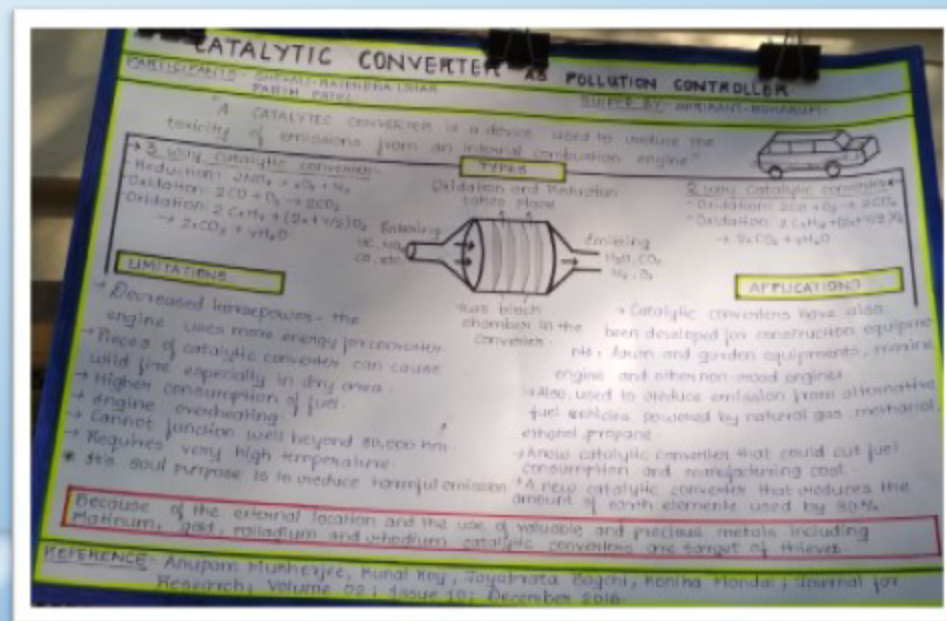 CATALYTIC CONVERTER AS POLLUTION CONTROLLER
PARTICIPANTS-
PARTH PATEL
GUIDED BY-
"A CATALYTIC CONVERTER is a device used to reduce the
toxicity of emissions from an internal combustion engine"
TYPES
→ 3 way catalytic converter
Reduction: 2NOx → xO2 + N2
Oxidation: 2CO + O2 → 2CO2
Oxidation: 2CxHy + (2x+y/2)O2
→ 2xCO2 + yH2O
Oxidation and Reduction
takes place
Entering
HC, NOx
CO, etc
Emitting
H2O, CO2
N2, O2
two block
chamber in the
converter.
2 way Catalytic converter
Oxidation: 2CO + O2 → 2CO2
Oxidation: 2CxHy + (2x+y/2)O2
→ 2xCO2 + yH2O
LIMITATIONS
→ Decreased horsepower - the
engine uses more energy for converter
→ Pieces of catalytic converter can cause
wild fire especially in dry area.
→ Higher consumption of fuel.
→ Engine overheating.
→ Cannot function well beyond 80,000 km.
→ Requires very high temperature.
* It's soul purpose is to reduce harmful emission
APPLICATIONS
→ Catalytic converters have also
been developed for construction equipme-
nts, lawn and garden equipments, marine
engine and other non-road engines.
→ Also, used to reduce emission from alternative
fuel vehicles powered by natural gas, methanol,
ethanol, propane.
→ A new catalytic converter that could cut fuel
consumption and manufacturing cost.
* A new catalytic converter that reduces the
amount of earth elements used by 80%
Because of the external location and the use of valuable and precious metals including
Platinum, gold, palladium and rhodium catalytic converters are target of thieves
REFERENCE:- Anupam Mukherjee, Kunal Roy, Jayabrata Bagchi, Koniha Mondal; Journal for
Research; Volume 02; Issue 10; December 2016.